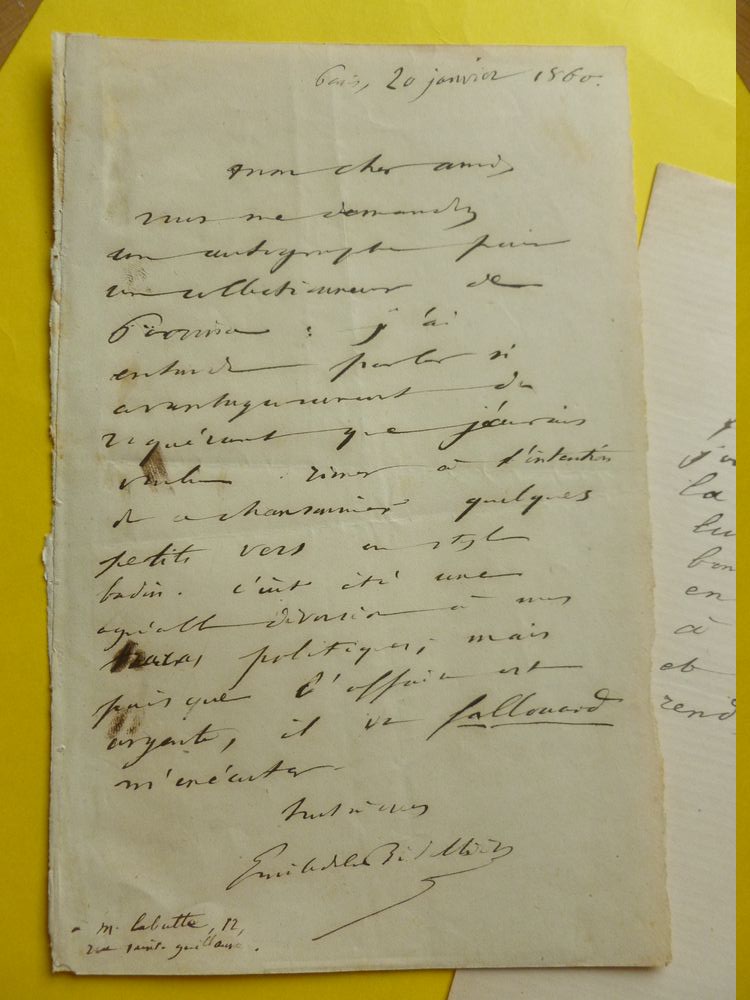 Paris, 20 janvier 1860.
mon cher ami,
vous me demandez
un autographe pour
un collectionneur de
: j'ai
entendu parler si
avantageusement du
requérant que j'aurais
voulu rimer à l'intention
de ce chansonnier quelques
petits vers en style
badin. c'eût été une
agréable diversion à nos
tracas politiques; mais
puisque l'affaire est
urgente, il va falloir
m'exécuter
tout à vous
Emile de la Bédollière
à m. labutte, 12,
rue saint-guillaume.
j'
la
en
à
et
rend